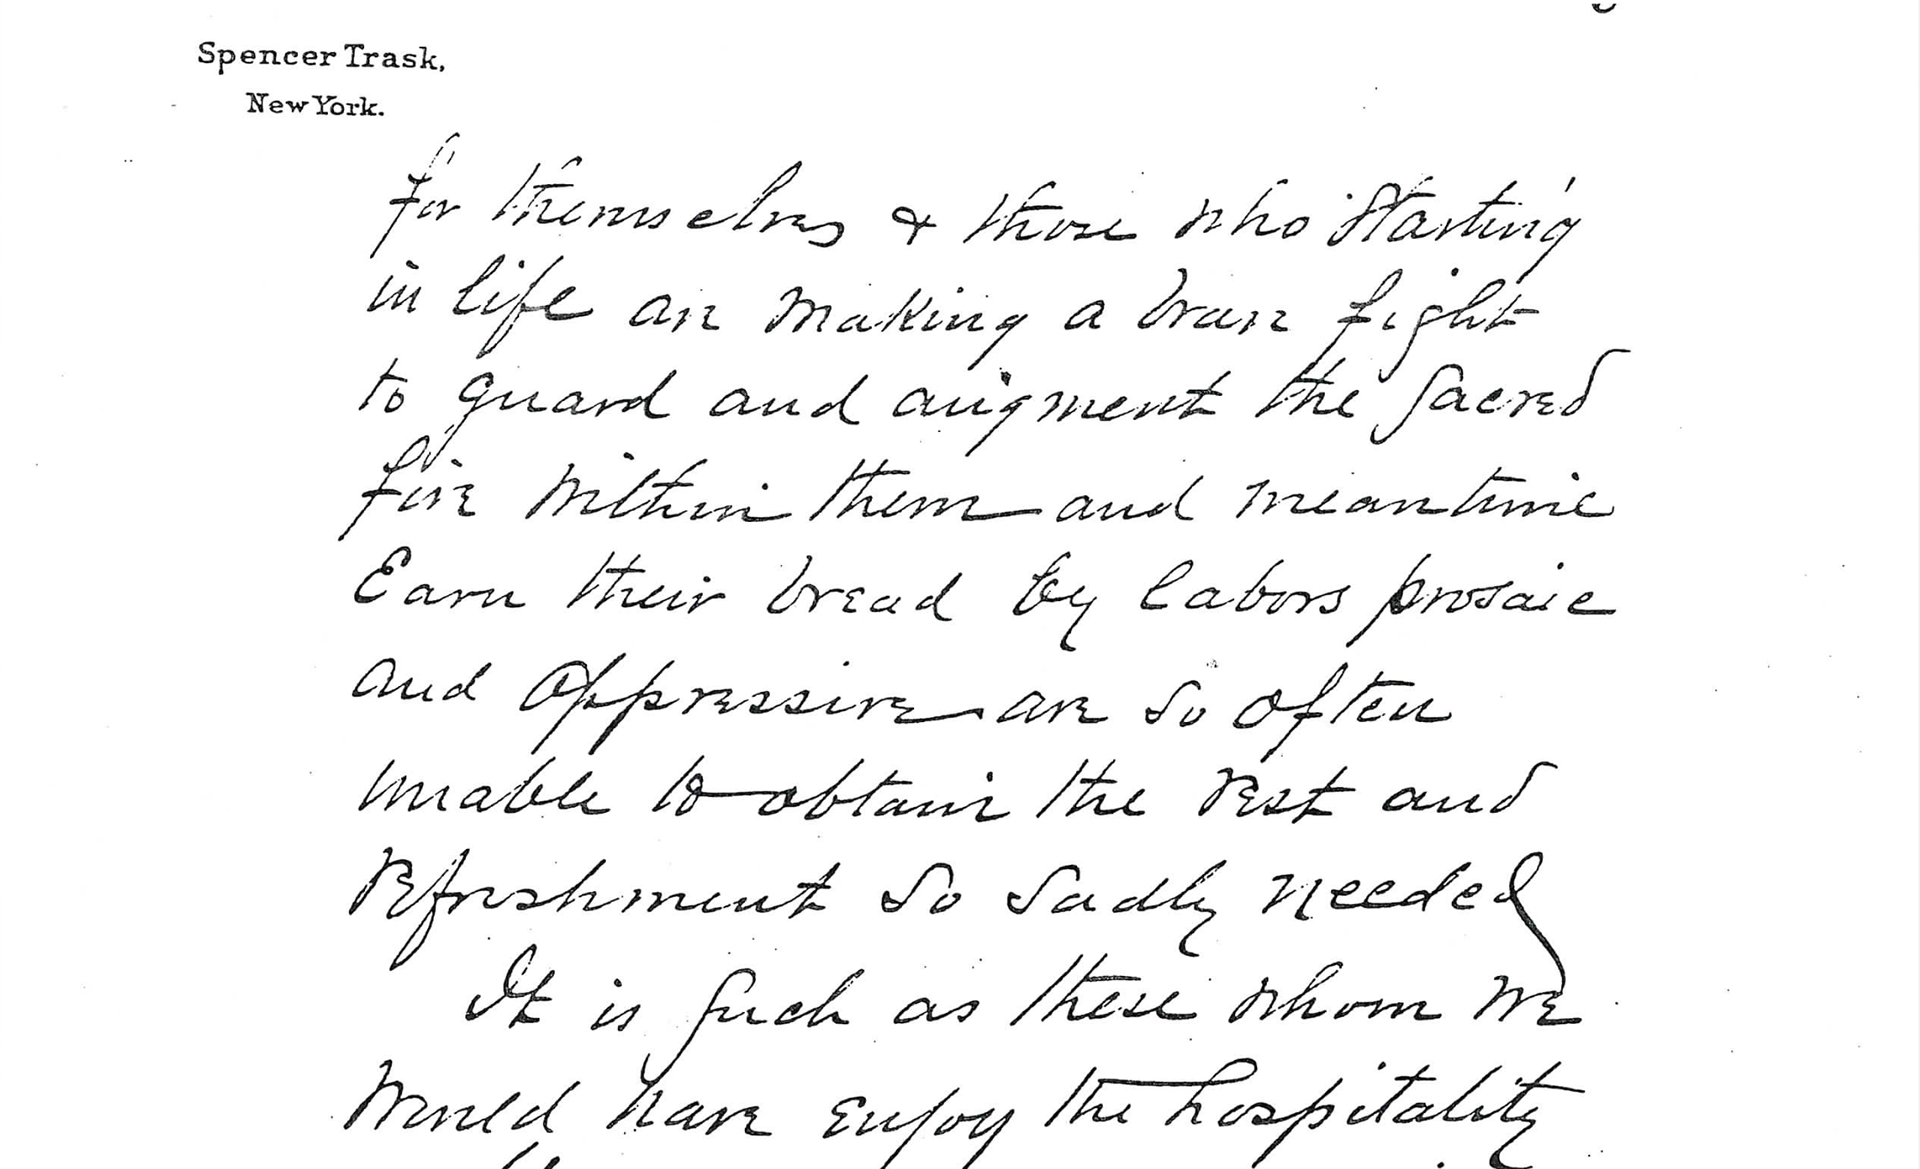 Spencer Trask,
New York.
for themselves & those who starting
in life are making a brave fight
to guard and augment the sacred
fire within them and meantime
Earn their bread by labors prosaic
and oppressive are so often
unable to obtain the rest and
refreshment so sadly needed
It is such as these whom we
would have enjoy the hospitality